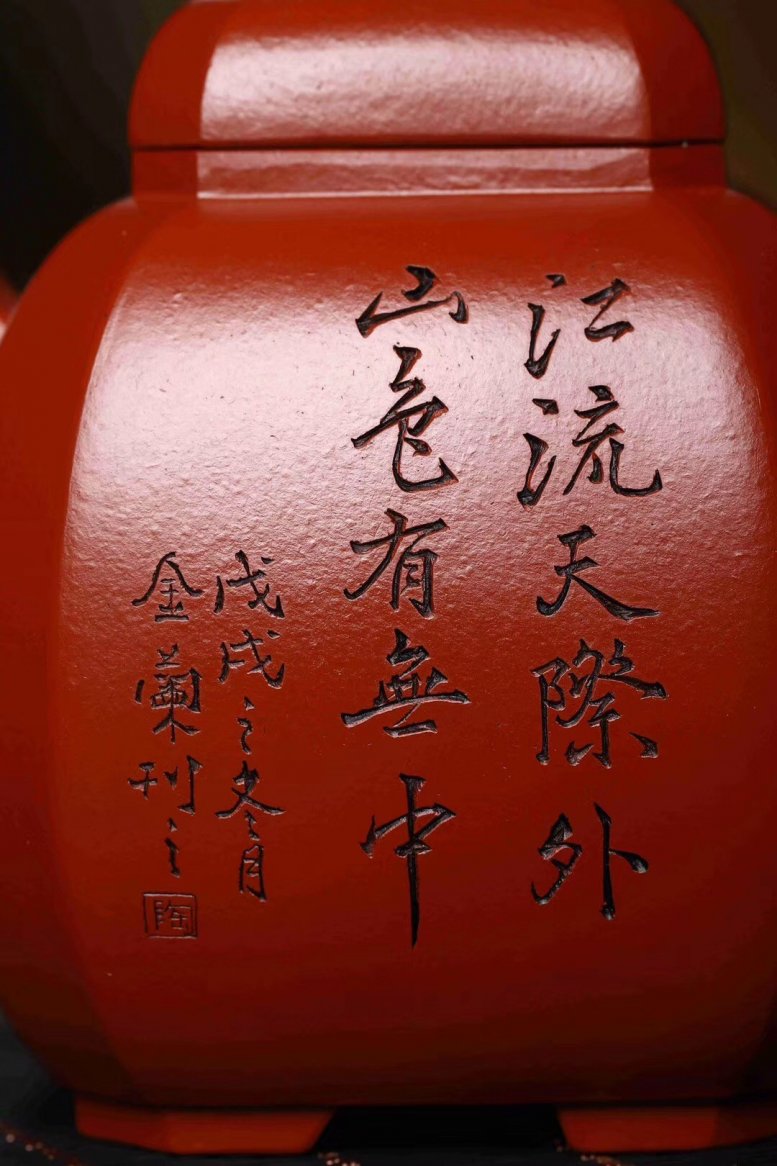 江流天際外
山色有無中
戊戌之冬月
金蘭刊之
陶